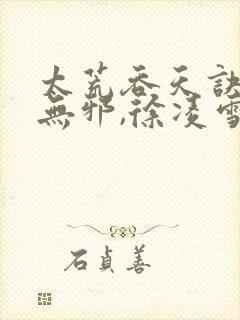 太荒吞天訣
無邪,徐凌雪
石貞善